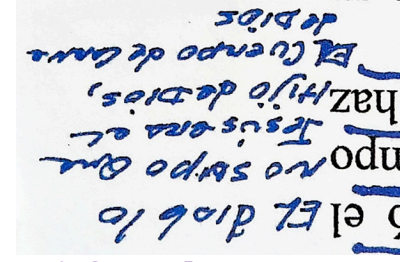 ó el EL diablo
mpo no supo que
Jesus era el
haz Hijo de Dios,
EL Cuerpo de Carne
de Dios